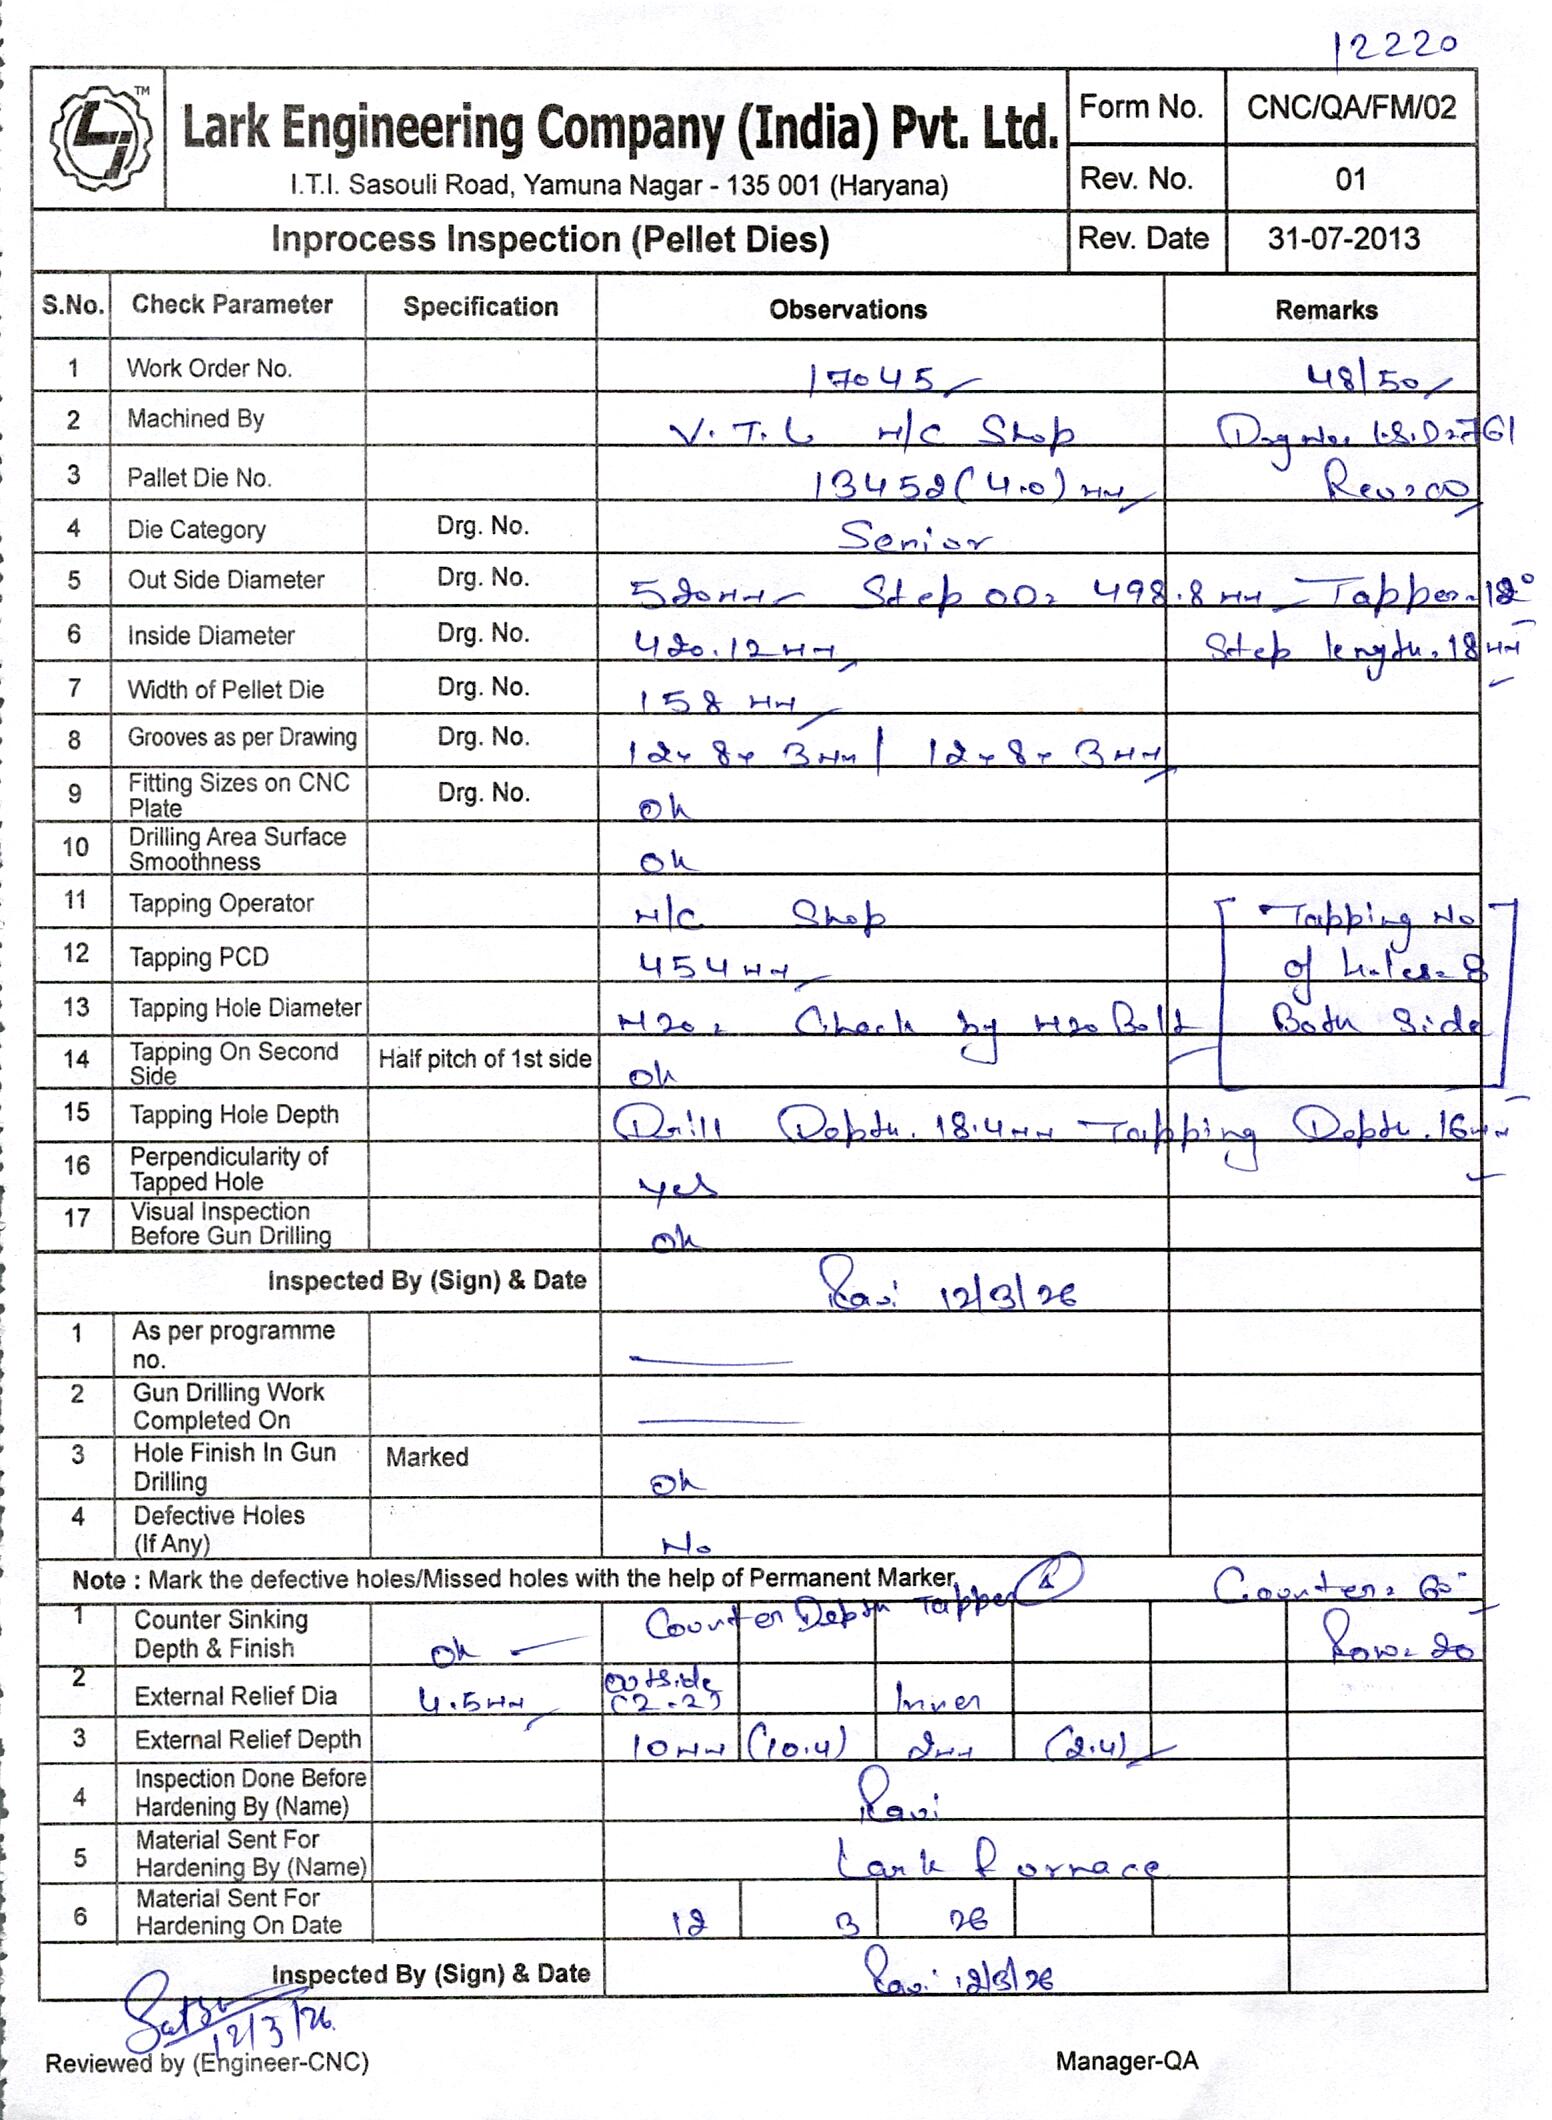 12220
Lark Engineering Company (India) Pvt. Ltd.
I.T.I. Sasouli Road, Yamuna Nagar - 135 001 (Haryana)
Form No. CNC/QA/FM/02
Rev. No. 01
Inprocess Inspection (Pellet Dies) Rev. Date 31-07-2013
S.No. Check Parameter Specification Observations Remarks
1 Work Order No. 17045 48/50
2 Machined By V.T.L M/C Shop Drg No.
3 Pallet Die No. 13452 (4.0) mm Rev:00
4 Die Category Drg. No. Senior
5 Out Side Diameter Drg. No. 520mm Step OD: 498.8 mm Tapper-12°
6 Inside Diameter Drg. No. 420.12mm Step length. 18mm
7 Width of Pellet Die Drg. No. 158 mm
8 Grooves as per Drawing Drg. No. 12x 8x 3mm / 12x8x 3mm
9 Fitting Sizes on CNC Plate Drg. No. Ok
10 Drilling Area Surface Smoothness Ok
11 Tapping Operator M/C Shop Tapping No
12 Tapping PCD 454mm of holes- 8
13 Tapping Hole Diameter M20: Check by M20 Bolt Both Side
14 Tapping On Second Side Half pitch of 1st side Ok
15 Tapping Hole Depth Drill Depth. 18.4mm Tapping Depth. 16mm
16 Perpendicularity of Tapped Hole yes
17 Visual Inspection Before Gun Drilling Ok
Inspected By (Sign) & Date Ravi 12/3/26
1 As per programme no.
2 Gun Drilling Work Completed On
3 Hole Finish In Gun Drilling Marked Ok
4 Defective Holes (If Any) No
Note : Mark the defective holes/Missed holes with the help of Permanent Marker. Counter: 60°
1 Counter Sinking Depth & Finish Ok Counter Depth Tapper Row- 20
2 External Relief Dia 4.5mm outside (2.2) Inner
3 External Relief Depth 10mm (10.4) 2mm (2.4)
4 Inspection Done Before Hardening By (Name) Ravi
5 Material Sent For Hardening By (Name) Lark Furnace
6 Material Sent For Hardening On Date 12 3 26
Inspected By (Sign) & Date Ravi 12/3/26
12/3/26
Reviewed by (Engineer-CNC) Manager-QA